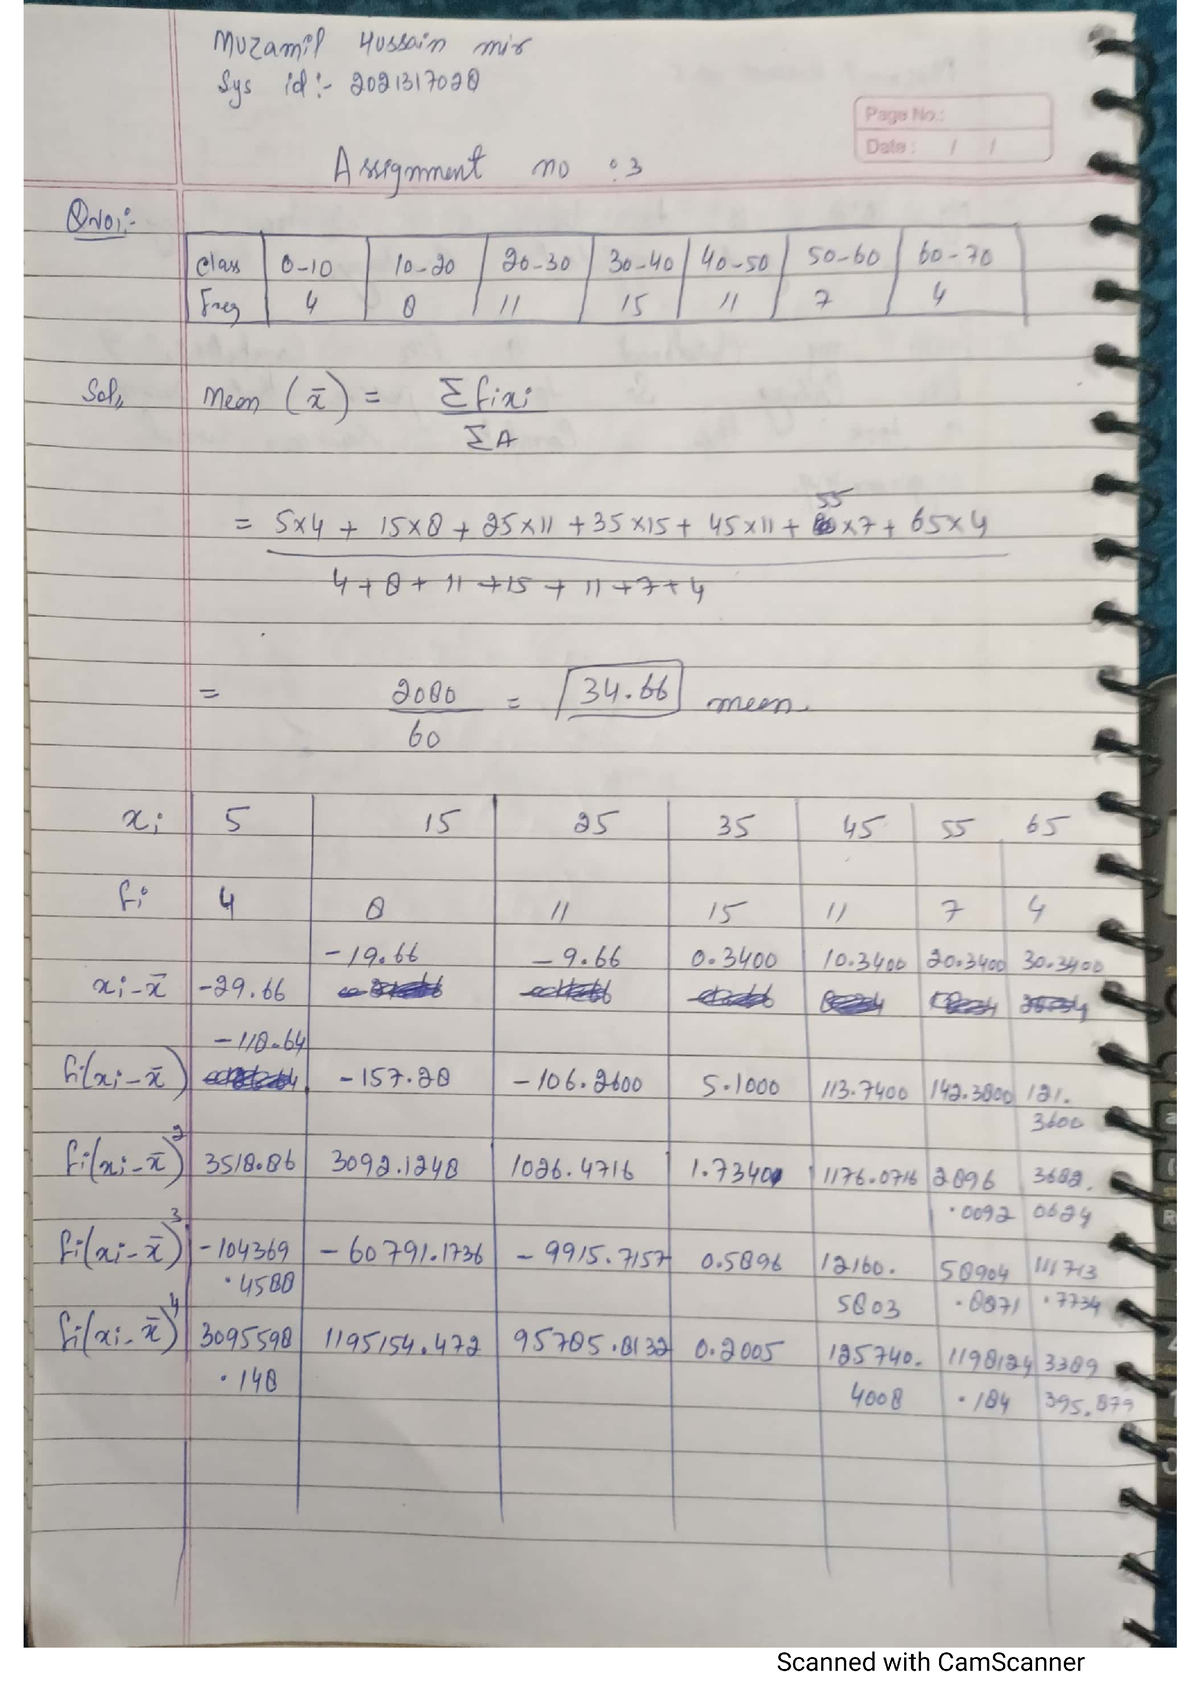 Muzamil Hussain mir
Sys id:- 2021317028
Page No.:
Date: / /
Assignment no :3
QNo1:-
Class 0-10 10-20 20-30 30-40 40-50 50-60 60-70
Freq 4 8 11 15 11 7 4
Sol, Meen (x̄) = Σfixi
ΣA
= 5x4 + 15x8 + 25x11 + 35x15 + 45x11 + 55x7 + 65x4
4+8+11+15+11+7+4
= 2080 = 34.66 meen.
60
xi 5 15 25 35 45 55 65
fi 4 8 11 15 11 7 4
xi-x̄ -29.66 -19.66 -9.66 0.3400 10.3400 20.3400 30.3400
fi(xi-x̄) -118.64 -157.28 -106.2600 5.1000 113.7400 142.3800 121.3600
fi(xi-x̄)² 3518.86 3092.1248 1026.4716 1.7340 1176.0716 2896.0092 3682.0624
fi(xi-x̄)³ -104369.4588 -60791.1736 -9915.7157 0.5896 12160.5803 58904.8871 111713.7734
fi(xi-x̄)⁴ 3095598.148 1195154.472 95785.8132 0.2005 125740.4008 1198124.184 3389395.879
Scanned with CamScanner